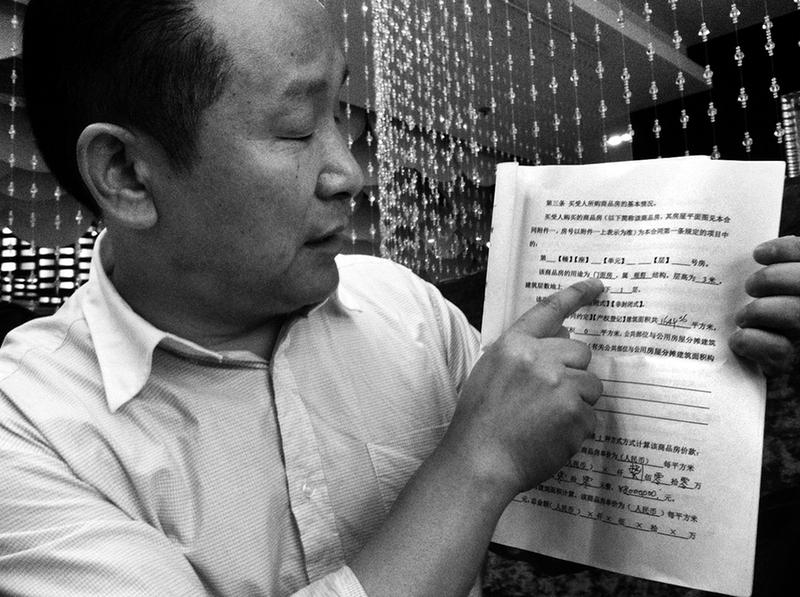 第三条 买受人所购商品房的基本情况。
买受人购买的商品房（以下简称该商品房，其房屋平面图见本合
同附件一，房号以附件一上表示为准）为本合同第一条规定的项目中
的：
第 【幢】【座】 【单元】 【层】 号房。
该商品房的用途为 门面房，属 框剪 结构，层高为 3 米，
建筑层数地上 下 1 层。
该商 闭式】【非封闭式】。
同约定】【产权登记】建筑面积共 平方米，
积 0 平方米，公共部位与公用房屋分摊建筑
有关公共部位与公用房屋分摊建筑面积构
1 种方式方式计算该商品房价款：
商品房单价为（人民币） 每平方米
（人民币） × 仟 佰 零 拾 零 万
拾 零 元整，¥ 元。
建筑面积计算，该商品房单价为（人民币）每平方米
元，总金额（人民币） × 仟 × 佰 × 拾 × 万